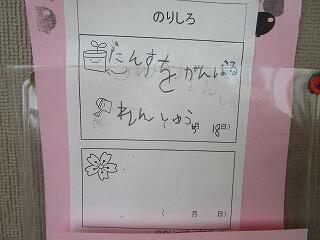 のりしろ
だんすを がんばる
れんしゅう
月 18日)
( 月 日)